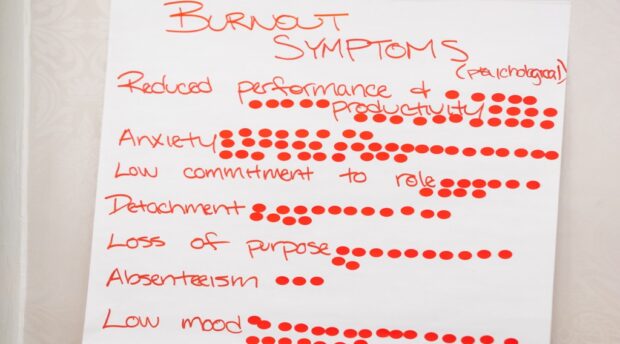 BURNOUT
SYMPTOMS
(psychological)
Reduced performance &
productivity
Anxiety
Low commitment to role
Detachment
Loss of purpose
Absenteeism
Low mood